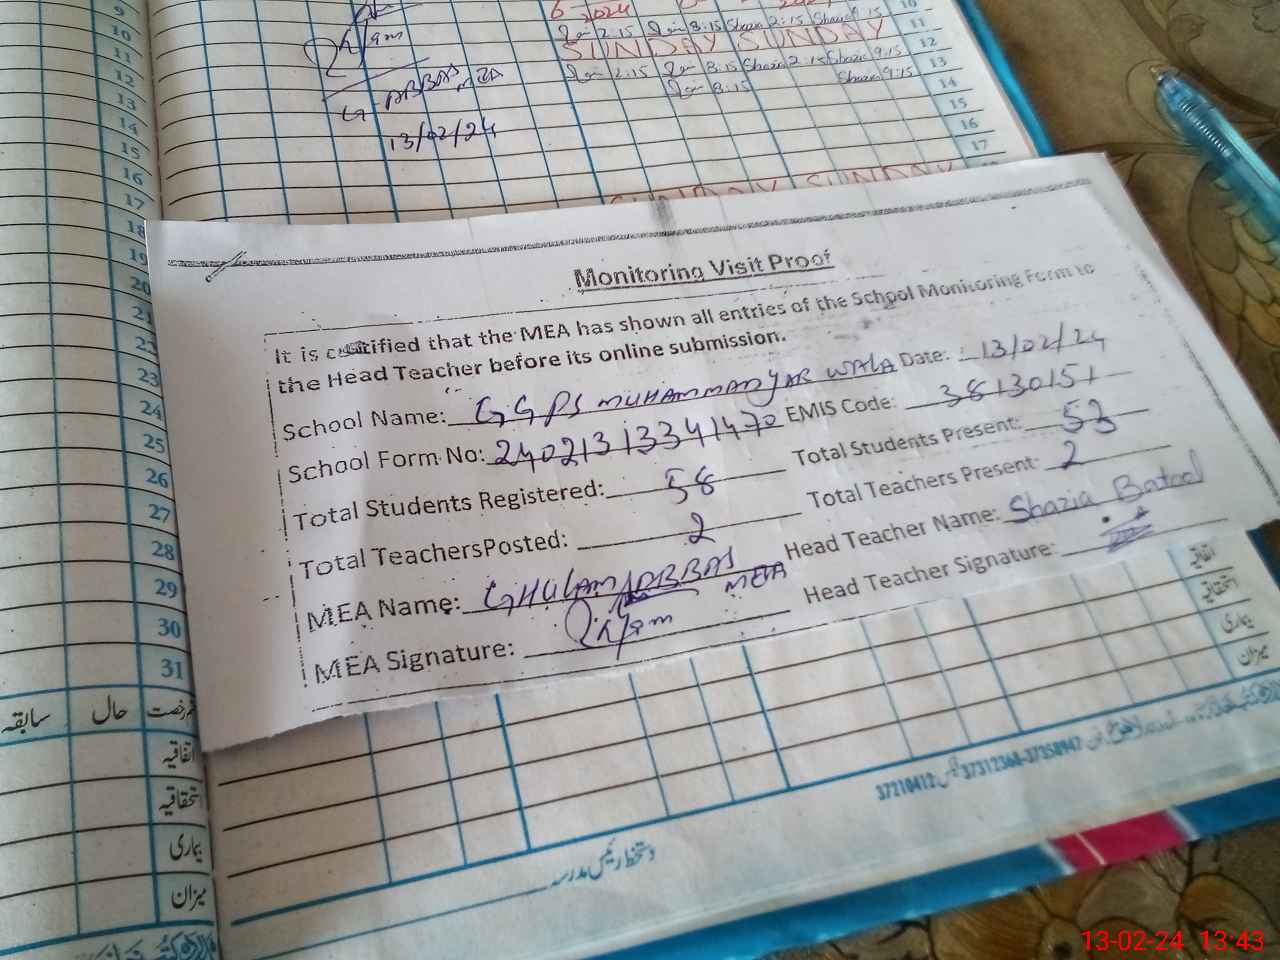 9
10
11
12
13
14
15
16
17
18
19
20
21
22
23
24
25
26
27
28
29
30
31
رخصت حال سابقہ
اتفاقیہ
استحقاقیہ
بیماری
میزان
G-ABBAS MEA
13/02/24
2024
2:15 8:15 Shazia 2:15 Shazia 9:15
SUNDAY SUNDAY
2:15 8:15 Shazia 2:15 Shazia 9:15
8:15 Shazia 9:15
10
11
12
13
14
15
16
17
SUNDAY SUNDAY
Monitoring Visit Proof
It is certified that the MEA has shown all entries of the School Monitoring Form to
the Head Teacher before its online submission.
School Name: GGPS MUHAMMAD YAR WALA Date: 13/02/24
School Form No: 24021313341470 EMIS Code: 38130151
Total Students Registered: 58 Total Students Present: 53
Total TeachersPosted: 2 Total Teachers Present: 2
MEA Name: GHULAM ABBAS MEA Head Teacher Name: Shazia Batool
MEA Signature: Head Teacher Signature:
اتفاقیہ
استحقاقیہ
بیماری
میزان
37210412 37312368-37358947
دستخط رئیس مدرسہ
13-02-24 13:43